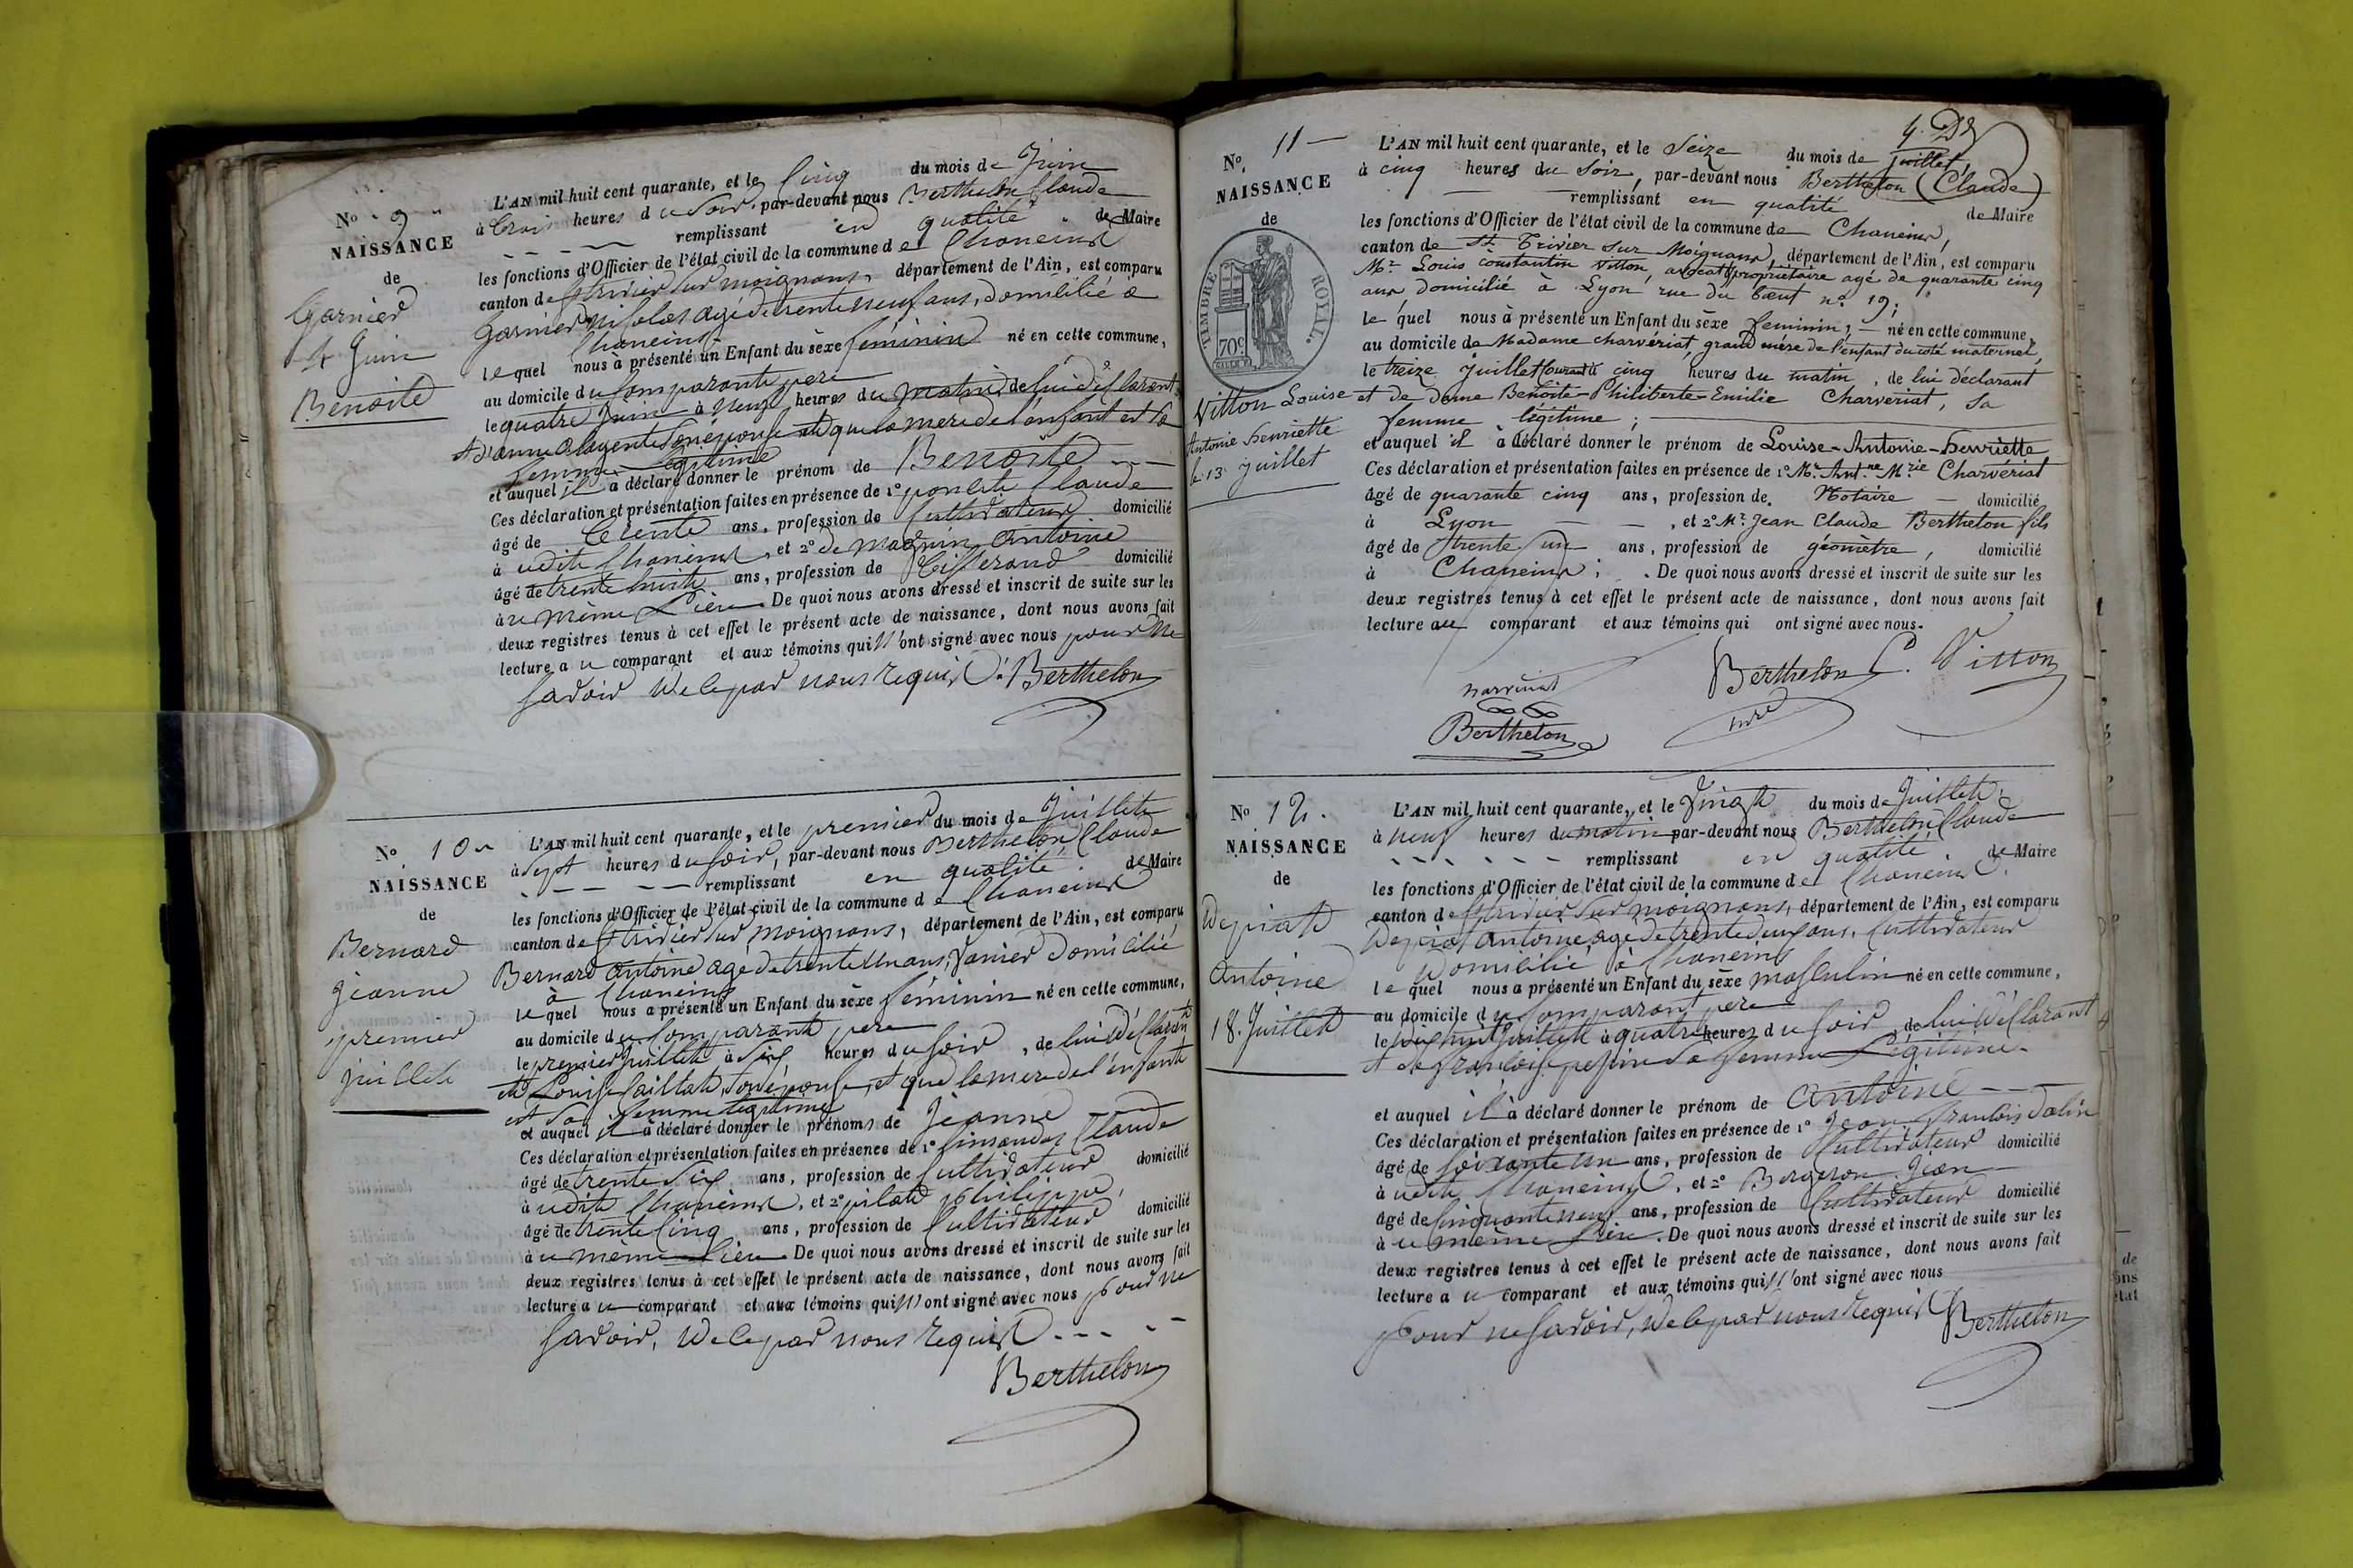 No 9
NAISSANCE
de
Garnier
4 Juin
Benoite
L'AN mil huit cent quarante, et le Cinq du mois de Juin
à trois heures du Soir, par-devant nous Berthelon Claude
remplissant en qualité de Maire
les fonctions d'Officier de l'état civil de la commune de Chaneins
canton de St trivier sur moignans, département de l'Ain, est comparu
Garnier Nicolas agé de trente neuf ans, domicilié a
Chaneins
lequel nous à présenté un Enfant du sèxe féminin né en cette commune,
au domicile du Comparant père
le quatre Juin à neuf heures du matin, de lui déclarant
et d'anne son épouse et que la mere de l'enfant est sa
femme légitime
et auquel il a déclaré donner le prénom de Benoite
Ces déclaration et présentation faites en présence de 1° Claude
âgé de trente ans, profession de Cultivateur domicilié
à udit Chaneins, et 2° de Antoine
âgé de trente huit ans, profession de Tisserand domicilié
au même Lieu. De quoi nous avons dressé et inscrit de suite sur les
deux registres tenus à cet effet le présent acte de naissance, dont nous avons fait
lecture au comparant et aux témoins qui n'ont signé avec nous pour ne
savoir de ce par nous requis. Berthelon
No 10
NAISSANCE
de
Bernard
jeanne
premier
juillet
L'AN mil huit cent quarante, et le premier du mois de Juillet
à Sept heures du soir, par-devant nous Berthelon Claude
remplissant en qualité de Maire
les fonctions d'Officier de l'état civil de la commune de Chaneins
canton de St trivier sur moignans, département de l'Ain, est comparu
Bernard antoine agé de trente un ans, domicilié
à Chaneins
lequel nous a présenté un Enfant du sèxe féminin né en cette commune,
au domicile du Comparant père
le premier Juillet à Six heures du soir, de lui déclarant
et Louise son épouse, et que la mere de l'enfant
est sa femme légitime
et auquel il a déclaré donner le prénoms de Jeanne
Ces déclaration et présentation faites en présence de 1° Claude
âgé de trente Six ans, profession de Cultivateur domicilié
à udit Chaneins, et 2° pilat philippe,
âgé de trente Cinq ans, profession de Cultivateur domicilié
au même Lieu. De quoi nous avons dressé et inscrit de suite sur les
deux registres tenus à cet effet le présent acte de naissance, dont nous avons fait
lecture au comparant et aux témoins qui n'ont signé avec nous pour ne
savoir, de ce par nous requis
Berthelon
4. De
No. 11
NAISSANCE
de
TIMBRE ROYAL.
70c
Vitton Louise
Antonie Henriette
le 13 juillet
L'AN mil huit cent quarante, et le Seize du mois de juillet,
à cinq heures du Soir, par-devant nous Berthelon (Claude)
remplissant en qualité de Maire
les fonctions d'Officier de l'état civil de la commune de Chaneins,
canton de St Trivier sur Moignans, département de l'Ain, est comparu
Mr Louis Constantin Vitton, avocat propriétaire agé de quarante cinq
ans domicilié à Lyon rue du bœuf no 19;
lequel nous à présenté un Enfant du sèxe feminin, né en cette commune,
au domicile de Madame Charvériat grand mère de l'enfant du coté maternel,
le treize juillet courant à cinq heures du matin, de lui déclarant
et de dame Benoite-Philiberte-Emilie Charvériat, sa
femme légitime;
et auquel il à déclaré donner le prénom de Louise-Antonie-Henriette
Ces déclaration et présentation faites en présence de 1° Mr Antne Mrie Charvériat
âgé de quarante cinq ans, profession de Notaire domicilié
à Lyon, et 2° Mr Jean Claude Berthelon fils
âgé de trente un ans, profession de géomètre, domicilié
à Chaneins; De quoi nous avons dressé et inscrit de suite sur les
deux registres tenus à cet effet le présent acte de naissance, dont nous avons fait
lecture au comparant et aux témoins qui ont signé avec nous.
Berthelon C. Vitton
Berthelon
No 12.
NAISSANCE
de
Depirat
Antoine
18. Juillet
L'AN mil huit cent quarante, et le Vingt du mois de Juillet,
à neuf heures du matin par-devant nous Berthelon Claude
remplissant en qualité de Maire
les fonctions d'Officier de l'état civil de la commune de Chaneins.
canton de St trivier sur moignans, département de l'Ain, est comparu
antoine agé de trente deux ans, Cultivateur
domicilié à Chaneins
lequel nous a présenté un Enfant du sèxe masculin né en cette commune,
au domicile du Comparant père
le dix huit Juillet à quatre heures du soir, de lui déclarant
et de françoise sa femme Légitime.
et auquel il à déclaré donner le prénom de Antoine
Ces déclaration et présentation faites en présence de 1° Jean francois
âgé de soixante un ans, profession de Cultivateur domicilié
à udit Chaneins, et 2° Bergeron Jean
âgé de cinquante neuf ans, profession de Cultivateur domicilié
au même Lieu. De quoi nous avons dressé et inscrit de suite sur les
deux registres tenus à cet effet le présent acte de naissance, dont nous avons fait
lecture au comparant et aux témoins qui n'ont signé avec nous
pour ne savoir, de ce par nous requis Berthelon